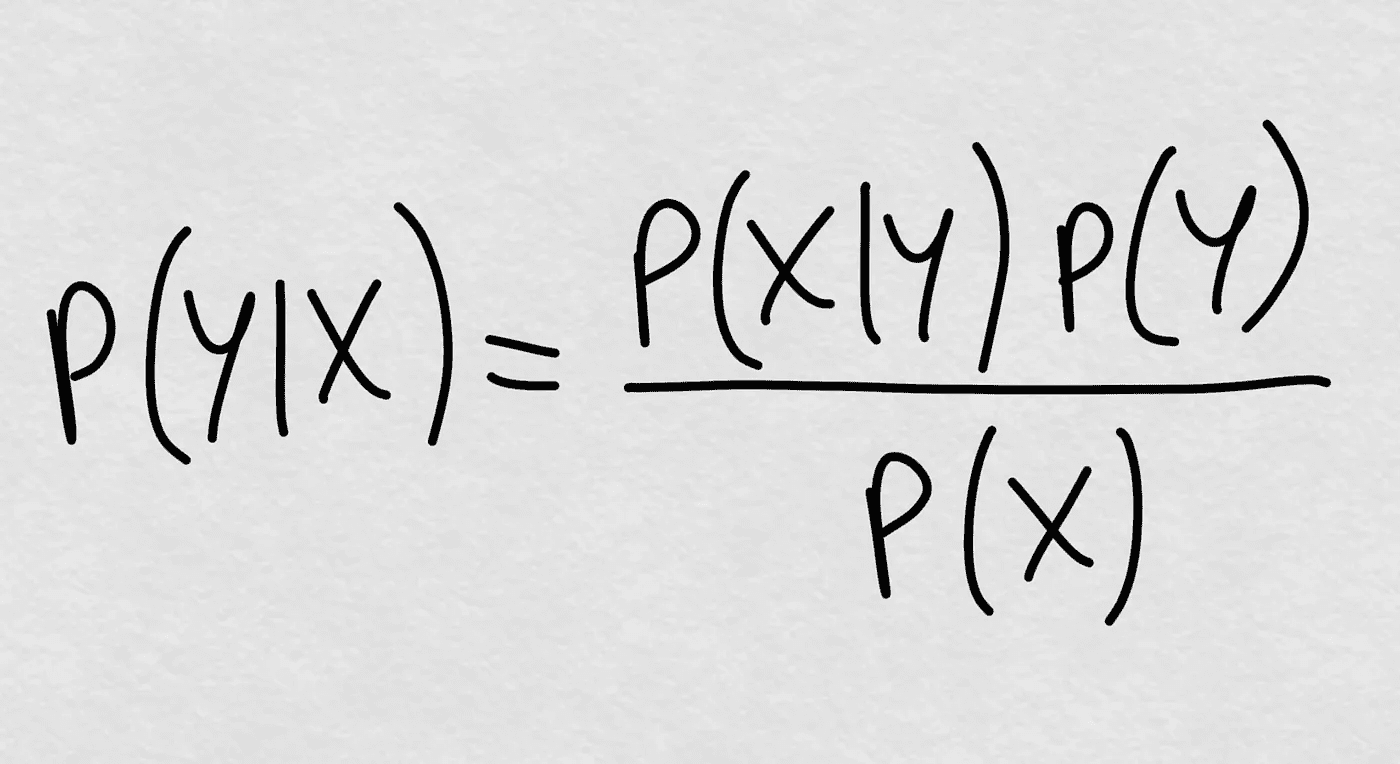 P(Y|X) = P(X|Y) P(Y)
P(X)